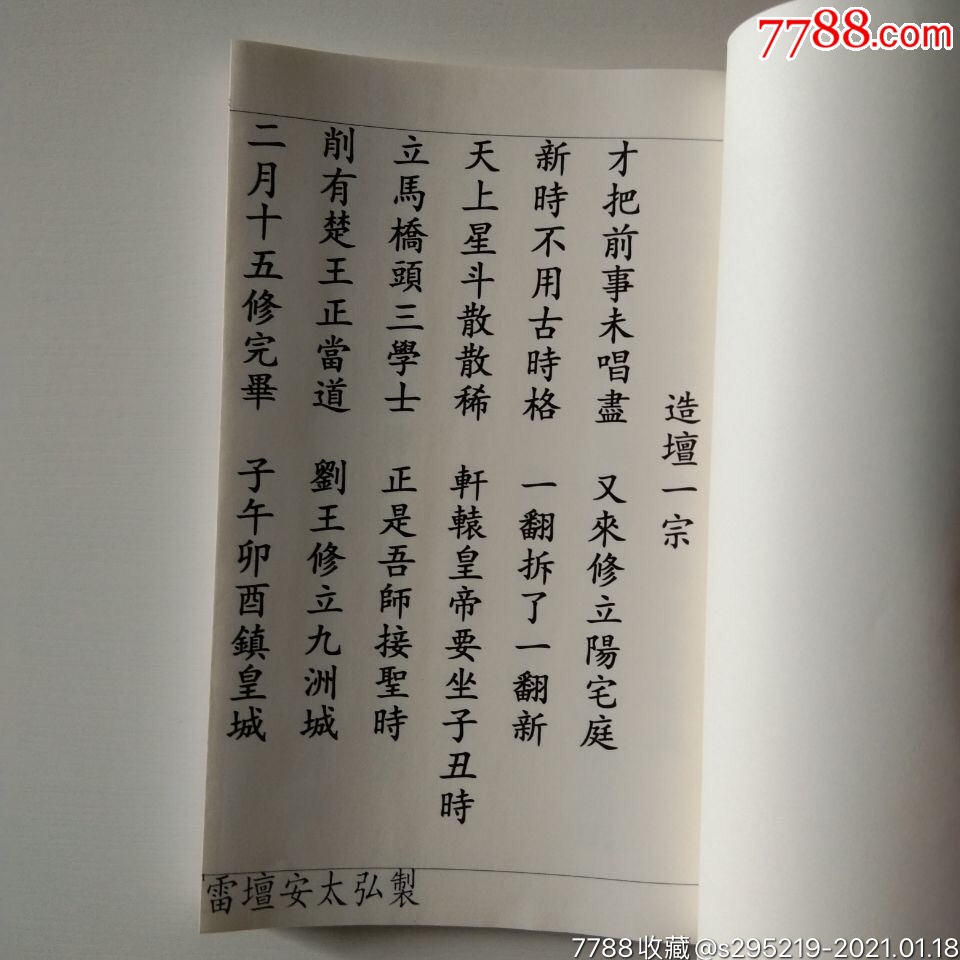 7788.com
造壇一宗
才把前事未唱盡 又來修立陽宅庭
新時不用古時格 一翻拆了一翻新
天上星斗散散稀 軒轅皇帝要坐子丑時
立馬橋頭三學士 正是吾師接聖時
削有楚王正當道 劉王修立九洲城
二月十五修完畢 子午卯酉鎮皇城
雷壇安太弘製
7788收藏@s295219-2021.01.18